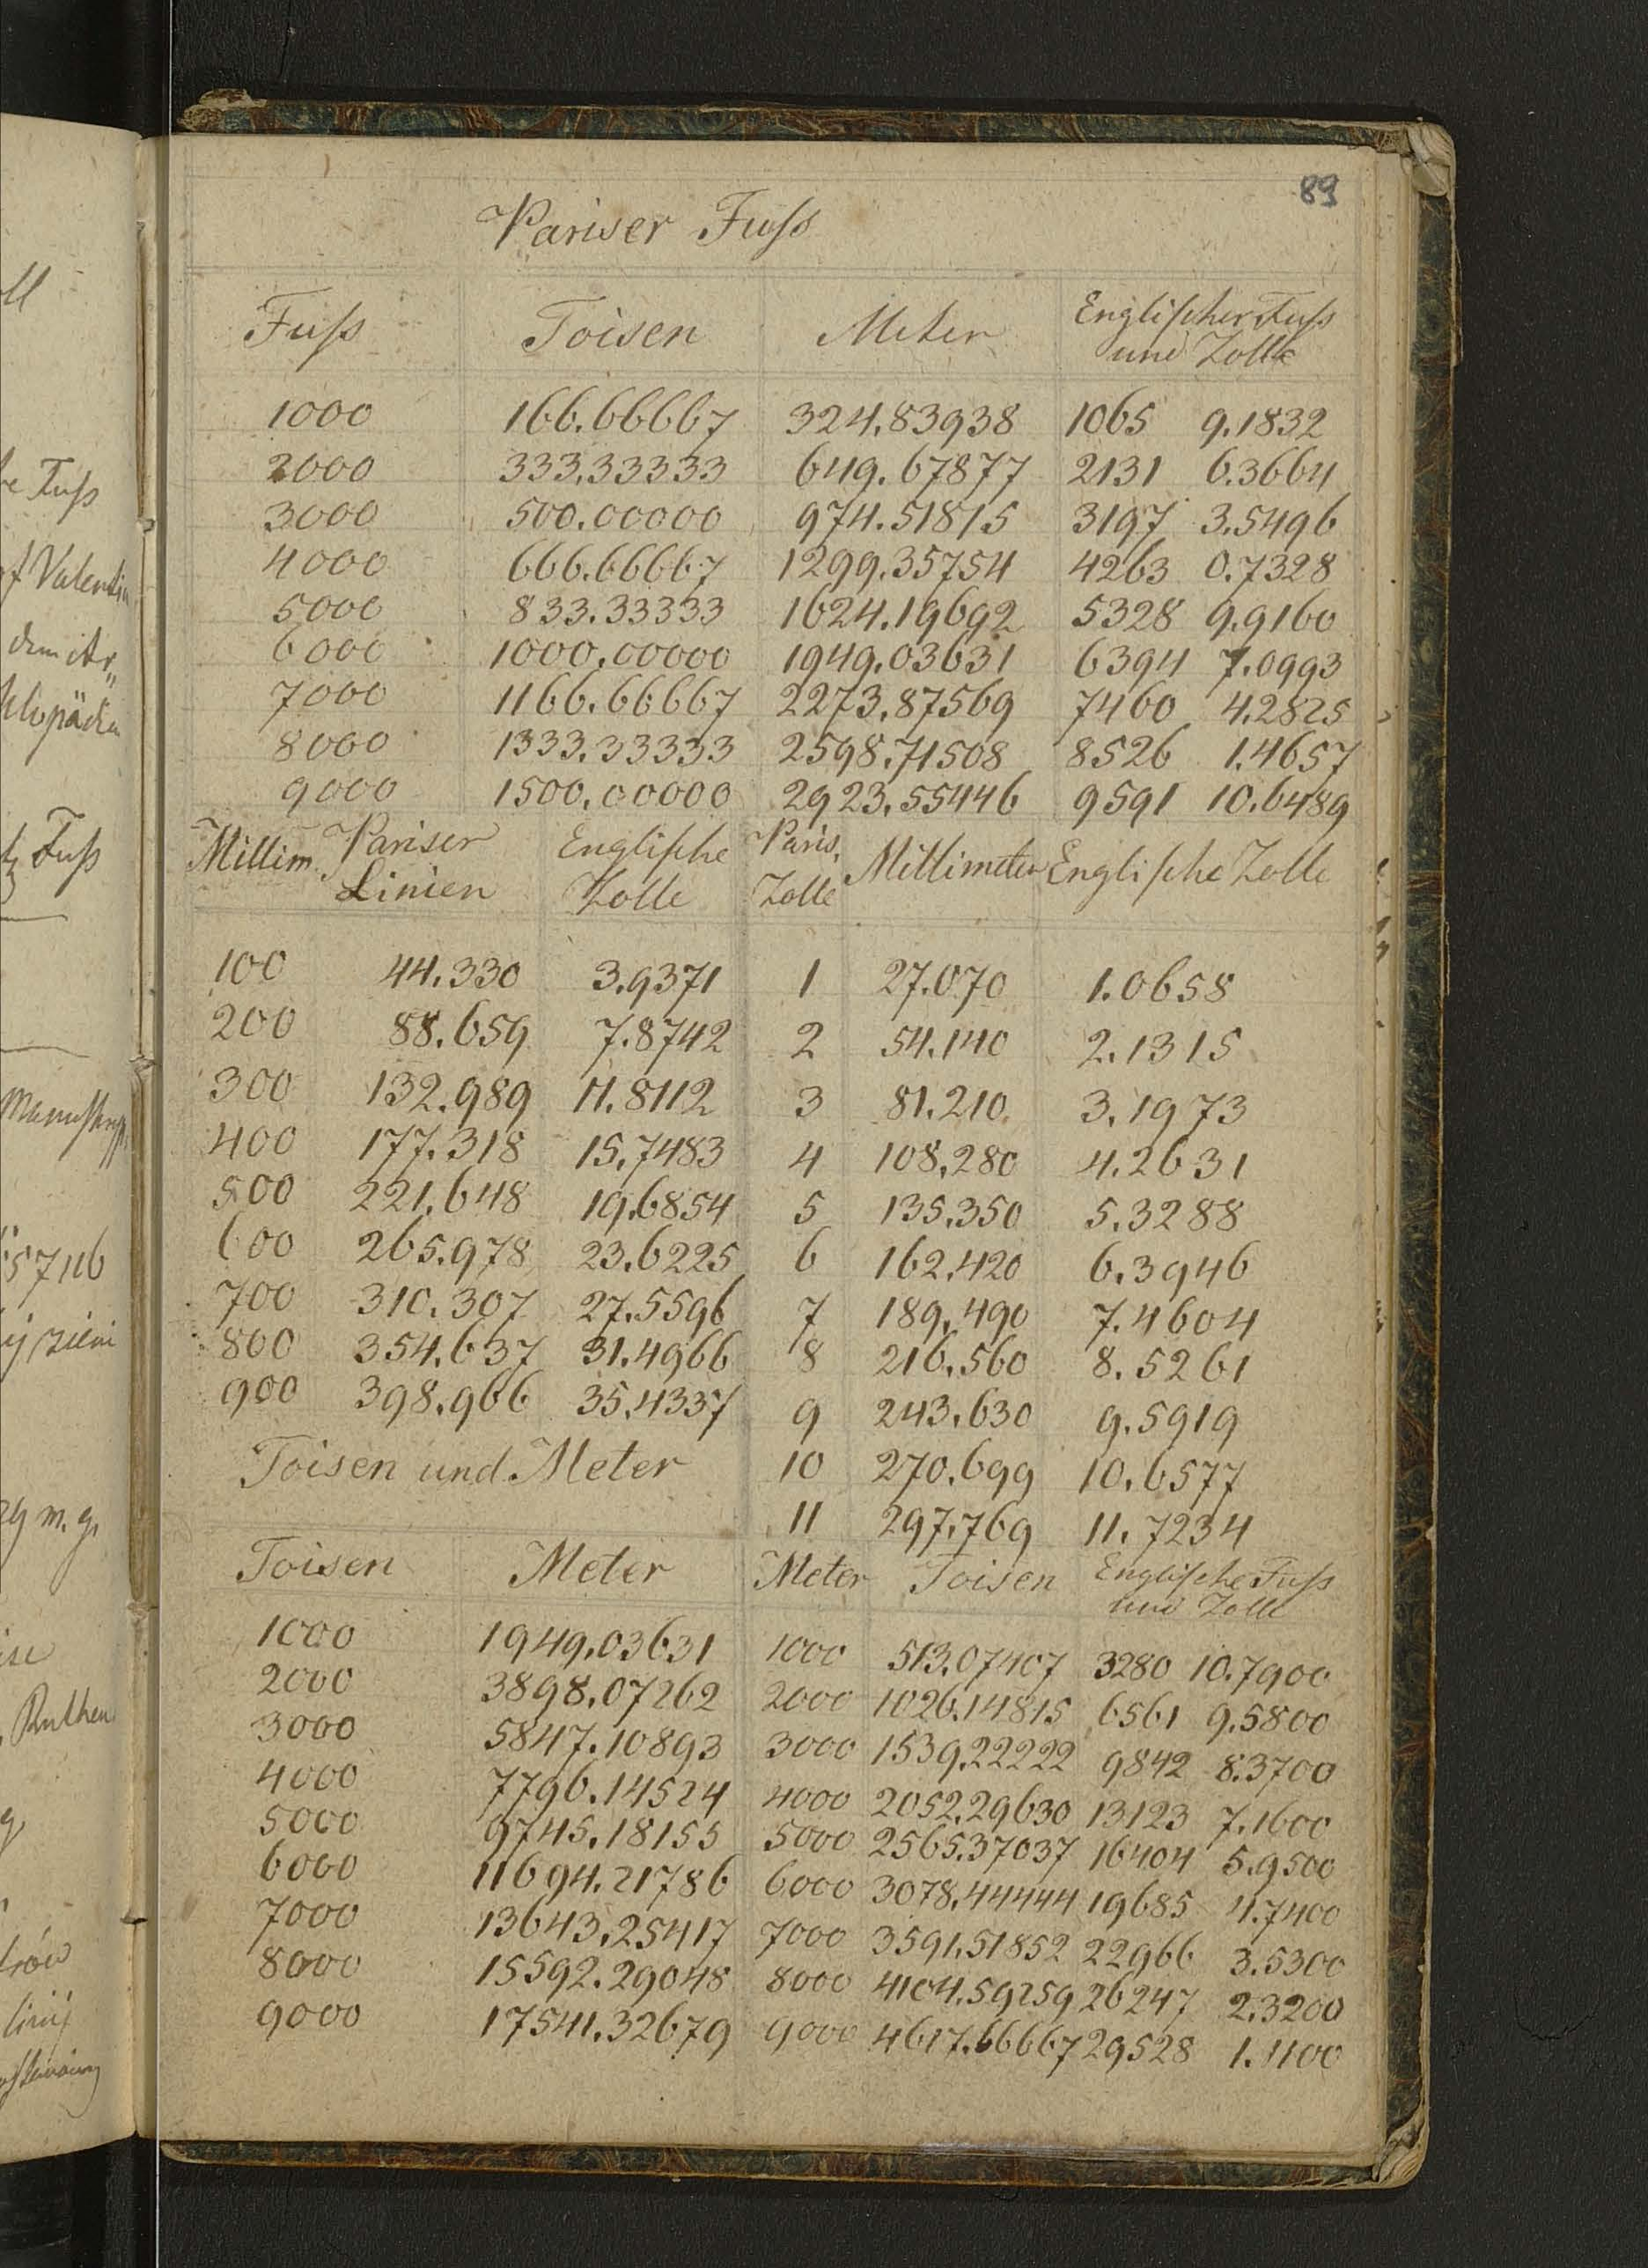 89
Pariser Fuſs
Fuſs Toisen Meter Engliſcher Fuſs und Zolle
1000 166.66667 324.83938 1065 9.1832
2000 333.33333 649.67877 2131 6.3664
3000 500.00000 974.51815 3197 3.5496
4000 666.66667 1299.35754 4263 0.7328
5000 833.33333 1624.19692 5328 9.9160
6000 1000.00000 1949.03631 6394 7.0993
7000 1166.66667 2273.87569 7460 4.2825
8000 1333.33333 2598.71508 8526 1.4657
9000 1500.00000 2923.55446 9591 10.6489
Millim. Pariser Linien Engliſche Zolle
100 44.330 3.9371
200 88.659 7.8742
300 132.989 11.8112
400 177.318 15.7483
500 221.648 19.6854
600 265.978 23.6225
700 310.307 27.5596
800 354.637 31.4966
900 398.966 35.4337
Paris. Zolle Millimeter Engliſche Zolle
1 27.070 1.0658
2 54.140 2.1315
3 81.210 3.1973
4 108.280 4.2631
5 135.350 5.3288
6 162.420 6.3946
7 189.490 7.4604
8 216.560 8.5261
9 243.630 9.5919
10 270.699 10.6577
11 297.769 11.7234
Toisen und Meter
Toisen Meter
1000 1949.03631
2000 3898.07262
3000 5847.10893
4000 7796.14524
5000 9745.18155
6000 11694.21786
7000 13643.25417
8000 15592.29048
9000 17541.32679
Meter Toisen Engliſche Fuſs und Zolle
1000 513.07407 3280 10.7900
2000 1026.14815 6561 9.5800
3000 1539.22222 9842 8.3700
4000 2052.29630 13123 7.1600
5000 2565.37037 16404 5.9500
6000 3078.44444 19685 4.7400
7000 3591.51852 22966 3.5300
8000 4104.59259 26247 2.3200
9000 4617.66667 29528 1.1100
Fuſs
Fuſs